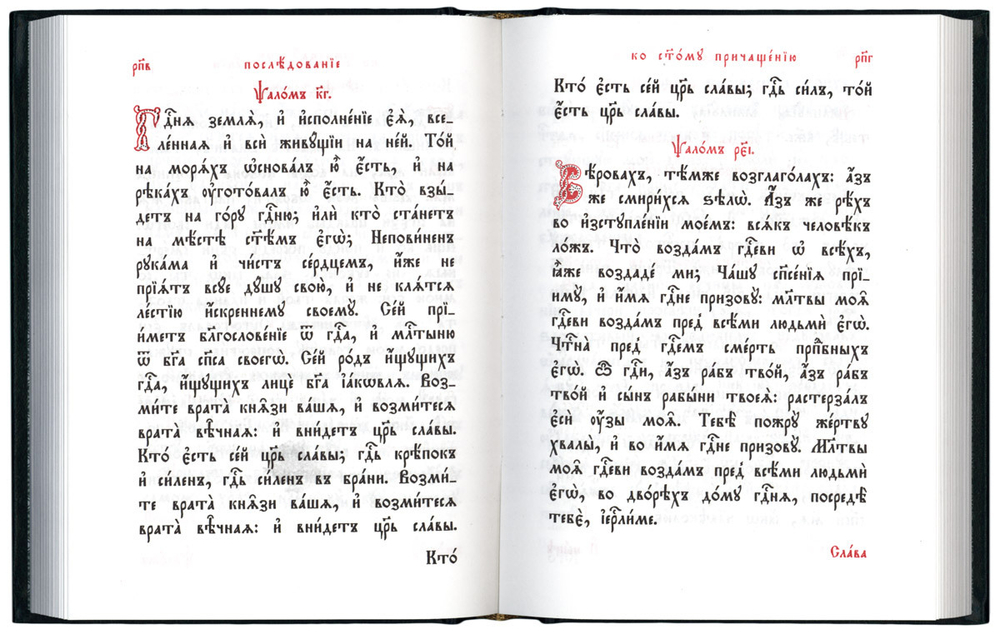 рп҃в
послѣ́дованїе
Ѱало́мъ к҃г.
Гдⷭ҇нѧ землѧ̀, и҆ и҆сполне́нїе є҆ѧ̀, все-
ле́ннаѧ и҆ вси̑ живꙋ́щїи на не́й. То́й
на морѧ́хъ ѡ҆снова́лъ ю҆̀ є҆́сть, и҆ на
рѣка́хъ ᲂу҆гото́валъ ю҆̀ є҆́сть. Кто̀ взы́-
детъ на го́рꙋ гдⷭ҇ню; и҆лѝ кто̀ ста́нетъ
на мѣ́стѣ ст҃ѣ́мъ є҆гѡ̀; Непови́ненъ
рꙋка́ма и҆ чи́стъ се́рдцемъ, и҆́же не
прїѧ́тъ всꙋ́е дꙋ́шꙋ свою̀, и҆ не клѧ́тсѧ
ле́стїю и҆́скреннемꙋ своемꙋ̀. Се́й прїи́-
метъ блгⷭ҇ове́нїе ѿ гдⷭ҇а, и҆ млⷭ҇тыню
ѿ бг҃а сп҃са своегѡ̀. Се́й ро́дъ и҆́щꙋщихъ
гдⷭ҇а, и҆́щꙋщихъ лицѐ бг҃а і҆а́кѡвлѧ. Воз-
ми́те врата̀ кнѧ̑зи ва́шѧ, и҆ возми́тесѧ
врата̀ вѣ̑чнаѧ: и҆ вни́детъ цр҃ь сла́вы.
Кто̀ є҆́сть се́й цр҃ь сла́вы; гдⷭ҇ь крѣ́покъ
и҆ си́ленъ, гдⷭ҇ь си́ленъ въ бра́ни. Возми́-
те врата̀ кнѧ̑зи ва́шѧ, и҆ возми́тесѧ
врата̀ вѣ̑чнаѧ: и҆ вни́детъ цр҃ь сла́вы.
Кто̀
ко ст҃о́мꙋ причаще́нїю
рп҃г
Кто̀ є҆́сть се́й цр҃ь сла́вы; гдⷭ҇ь си́лъ, то́й
є҆́сть цр҃ь сла́вы.
Ѱало́мъ рє҃і.
Вѣ́ровахъ, тѣ́мже возглаго́лахъ: а҆́зъ
же смири́хсѧ ѕѣлѡ̀. А҆́зъ же рѣ́хъ
во и҆зстꙋпле́нїи мое́мъ: всѧ́къ человѣ́къ
ло́жъ. Что̀ возда́мъ гдⷭ҇еви ѡ҆ всѣ́хъ,
ꙗ҆̀же воздаде́ ми; Ча́шꙋ сп҃се́нїѧ прїи-
имꙋ̀, и҆ и҆́мѧ гдⷭ҇не призовꙋ̀: мл҃твы моѧ̑
гдⷭ҇еви возда́мъ пред̾ всѣ́ми людьмѝ є҆гѡ̀.
Чⷭ҇тна̀ пред̾ гдⷭ҇емъ сме́рть прпⷣбныхъ
є҆гѡ̀. Ѽ гдⷭ҇и, а҆́зъ ра́бъ тво́й, а҆́зъ ра́бъ
тво́й и҆ сы́нъ рабы́ни твоеѧ̀: растерза́лъ
є҆сѝ ᲂу҆́зы моѧ̑. Тебѣ̀ пожрꙋ̀ же́ртвꙋ
хвалы̀, и҆ во и҆́мѧ гдⷭ҇не призовꙋ̀. Мл҃твы
моѧ̑ гдⷭ҇еви возда́мъ пред̾ всѣ́ми людьмѝ
є҆гѡ̀, во дво́рѣхъ до́мꙋ гдⷭ҇нѧ, посредѣ̀
тебє̀, і҆ерⷭ҇ли́ме.
Сла́ва